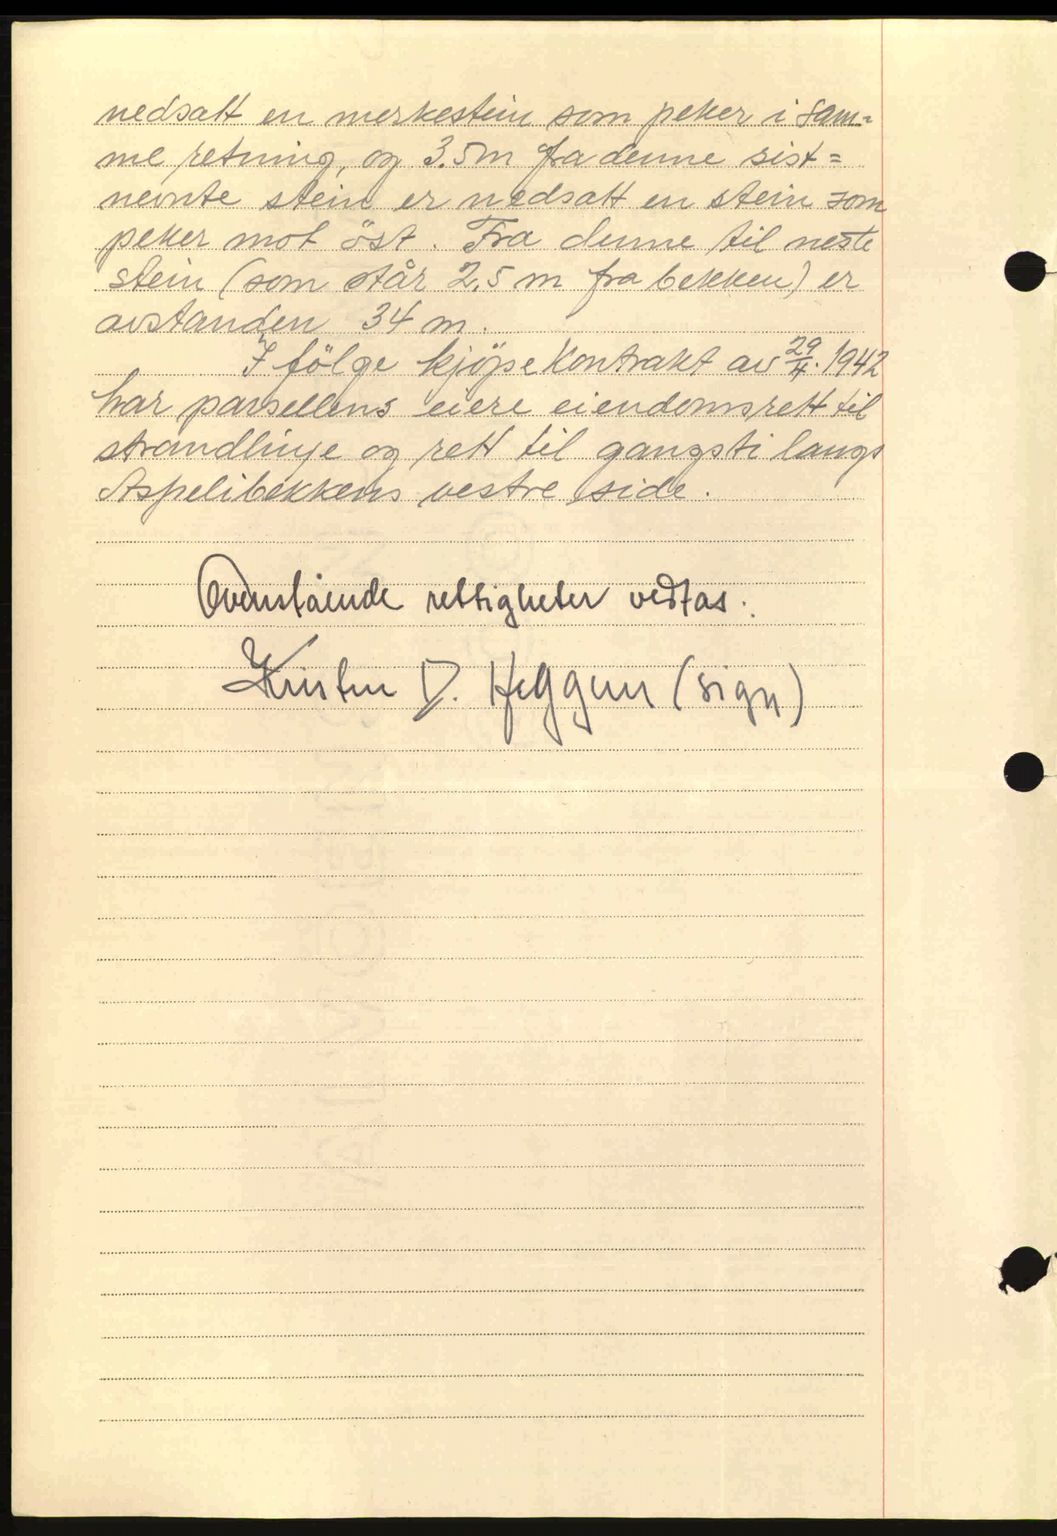 nedsatt en merkestein som peker i sam=
me retning, og 3.5m fra denne sist=
nevnte stein er nedsatt en stein som
peker mot öst. Fra denne til neste
stein (som står 2.5 m fra bekken) er
avstanden 34 m.
I fölge kjöpekontrakt av 29/4. 1942
har parsellens eiere eiendomsrett til
strandlinje og rett til gangsti langs
Aspelibekkens vestre side.
Ovenstående rettigheter vedtas.
Kristen D. Heggem (sign)